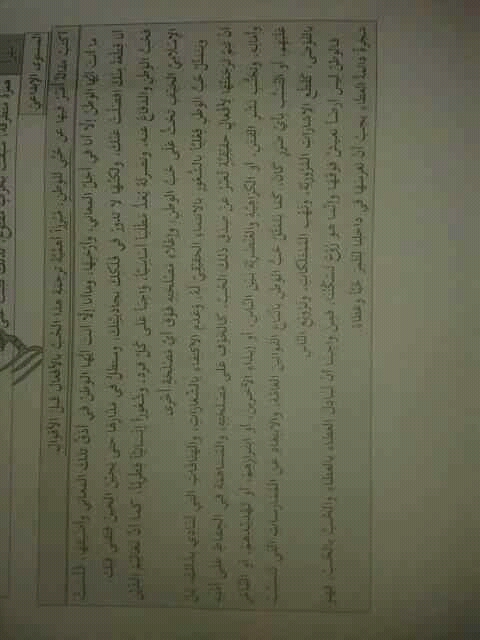 همزة متطرفة، سبقت بحرف مفتوح، لذلك كتبت على
المستوى الإبداعيّ
اكتب مقالةً أُعبِّر فيها عن حُبّي للوطنِ، مُبرزاً أهمّيّة ترجمة هذا الحُبّ بالأفعالِ قبلَ الأقوالِ.
ما أنتَ أيّها الوَطنُ إلّا أنا في أجَلّ المعاني، وأرْحَبِها، وماأنا إلّا أنتَ أيّها الوَطنُ في أدَقّ تلكَ المعاني وأضيَقها، فَلَسْتُ
أنا قِطْعةً مِنْكَ انْفصَلَتْ عَنْكَ، ولكنّها لا تدورُ في فَلَككَ بجاذبيّتِكَ، وستظلُّ في مَدَارِها حتى يَحِيْنَ الحَينُ فتفنى فيكَ.
فَحُبُّ الوَطنِ والدفاعُ عنه، ونصرتُه يُعَدُّ مَطلَباً أساسيّاً، وَاجباً على كُلِّ فردٍ، وشُعوراً إنسانيّاً فِطريّاً، كما أنَّ تعاليمَ الدّينِ
الإسلاميّ الحَنيْفِ تَحثُّ عَلَى حُبّ الوَطنِ، وإعْلاءِ مَصْلحتِهِ فَوْقَ أيِّ مَصْلحَةٍ أُخْرى.
ويَتمثّلُ حُبُّ الوَطنِ فِعْليّاً بالشُّعُورِ بالانتماءِ الحقيقيّ لَهُ، وعَدَمِ الاكتفاءِ بالشّعاراتِ، والهتافاتِ التي تُنادي بذلكَ، بَلْ
أنْ تَتمَّ تَرجَمَتُها لأفعالٍ حَقيقيّةٍ تُعبّرُ عنْ صِدقِ ذلكَ الحُبّ، كالخَوْفِ على مَصْلحتِهِ، والمُسَاهمَة في الحِفاظِ على أمْنِهِ
وأمانِهِ، وتجَنُّبِ نَشْرِ الفتَنِ، أو الكَرَاهِيَّةِ والعُنْصُريّةِ بَينَ النّاسِ، أو إيذاءِ الآخرين، أو ابتزازِهمْ، أو تَهْديدِهمْ، أو التآمُرِ
عَلَيْهِم، أو التّسَبُّبِ بأيّ ضَررٍ كَانَ، كَمَا يَتَمَثَّلُ حُبُّ الوَطنِ باتّباعِ القَوانينِ العَامّةِ، والابتِعَادِ عن المُمَارَساتِ التي تَتَسبَّبُ
بالفَوْضَى، كَقَطْعِ الإشاراتِ المُرُوريّةِ، ونَهْبِ المُمْتَلَكاتِ، وتَرْويعِ النّاسِ.
فالوطنُ ليس أرضاً نعيشُ فوقَها وإنّما هو رُوْحٌ تَسكُنُنا، فمِنْ واجبِنا أنْ نُبَادلَ العطاءَ بالعَطاءِ والحُبَّ بالحُبِّ، فهوَ
شَجَرةٌ دائمةُ العطاءِ يجبُ أنْ نَغرسَهَا في داخلِنا لتُثمِرَ حُبّاً وعَطاءً.